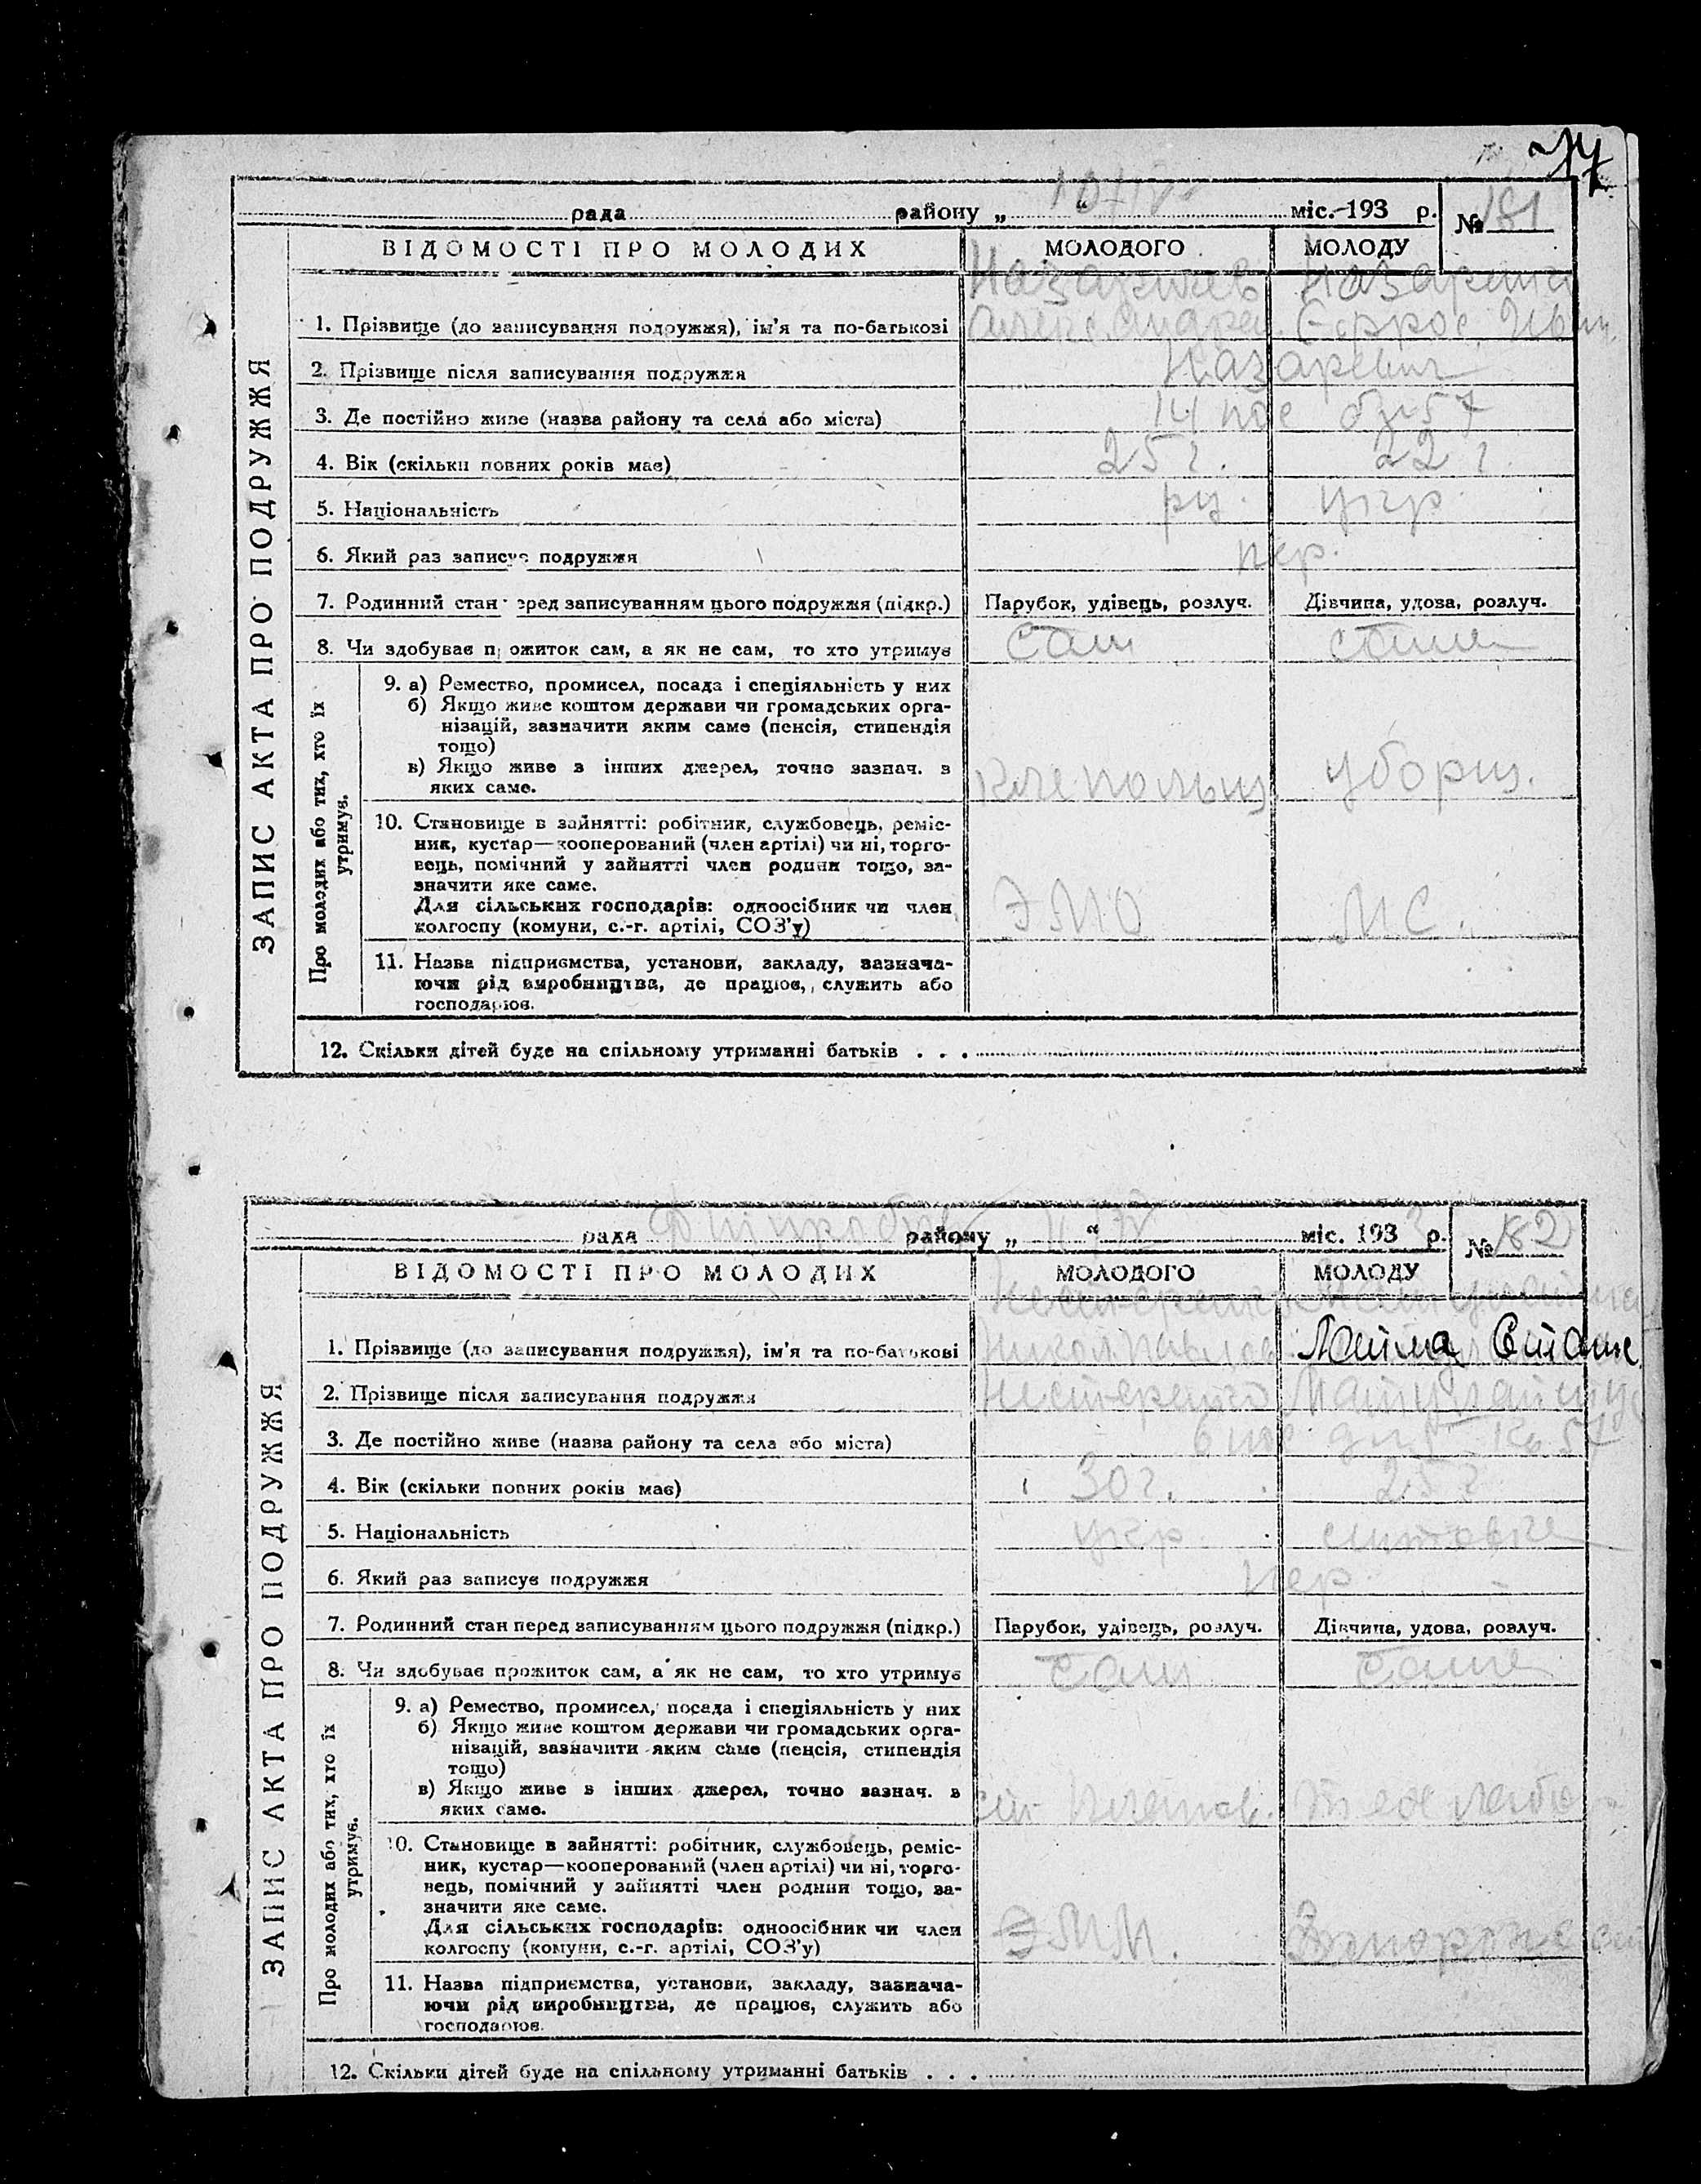 74
рада району „ 10/IV “ міс. 193 р. № 181
ВІДОМОСТІ ПРО МОЛОДИХ МОЛОДОГО МОЛОДУ
ЗАПИС АКТА ПРО ПОДРУЖЖЯ
1. Прізвище (до записування подружжя), ім'я та по-батькові
2. Прізвище після записування подружжя
3. Де постійно живе (назва району та села або міста) 14 пос 57
4. Вік (скільки повних років має) 25 г. 22 г.
5. Національність ру. укр.
6. Який раз записує подружжя пер.
7. Родинний стан перед записуванням цього подружжя (підкр.) Парубок, удівець, розлуч. Дівчина, удова, розлуч.
8. Чи здобуває прожиток сам, а як не сам, то хто утримує сам сама
Про молодих або тих, хто їх
утримує.
9. а) Ремество, промисел, посада і спеціяльність у них
б) Якщо живе коштом держави чи громадських орга-
нізацій, зазначити яким саме (пенсія, стипендія
тощо)
в) Якщо живе з інших джерел, точно зазнач. з
яких саме. уборщ.
10. Становище в зайнятті: робітник, службовець, реміс-
ник, кустар—кооперований (член артілі) чи ні, торго-
вець, помічний у зайнятті член родини тощо, за-
значити яке саме.
Для сільських господарів: одноосібник чи член
колгоспу (комуни, с.-г. артілі, СОЗ'у) ЭМО М.С.
11. Назва підприємства, установи, закладу, зазнача-
ючи рід виробництва, де працює, служить або
господарює.
12. Скільки дітей буде на спільному утриманні батьків . . .
рада району „ 11/IV “ міс. 1933 р. № 182
ВІДОМОСТІ ПРО МОЛОДИХ МОЛОДОГО МОЛОДУ
ЗАПИС АКТА ПРО ПОДРУЖЖЯ
1. Прізвище (до записування подружжя), ім'я та по-батькові
2. Прізвище після записування подружжя Нестеренко
3. Де постійно живе (назва району та села або міста) 6 пос
4. Вік (скільки повних років має) 30 г. 25 г
5. Національність укр литовка
6. Який раз записує подружжя пер.
7. Родинний стан перед записуванням цього подружжя (підкр.) Парубок, удівець, розлуч. Дівчина, удова, розлуч.
8. Чи здобуває прожиток сам, а як не сам, то хто утримує сам сама
Про молодих або тих, хто їх
утримує.
9. а) Ремество, промисел, посада і спеціяльність у них
б) Якщо живе коштом держави чи громадських орга-
нізацій, зазначити яким саме (пенсія, стипендія
тощо)
в) Якщо живе з інших джерел, точно зазнач. з
яких саме.
10. Становище в зайнятті: робітник, службовець, реміс-
ник, кустар—кооперований (член артілі) чи ні, торго-
вець, помічний у зайнятті член родини тощо, за-
значити яке саме.
Для сільських господарів: одноосібник чи член
колгоспу (комуни, с.-г. артілі, СОЗ'у)
11. Назва підприємства, установи, закладу, зазнача-
ючи рід виробництва, де працює, служить або
господарює.
12. Скільки дітей буде на спільному утриманні батьків . . .